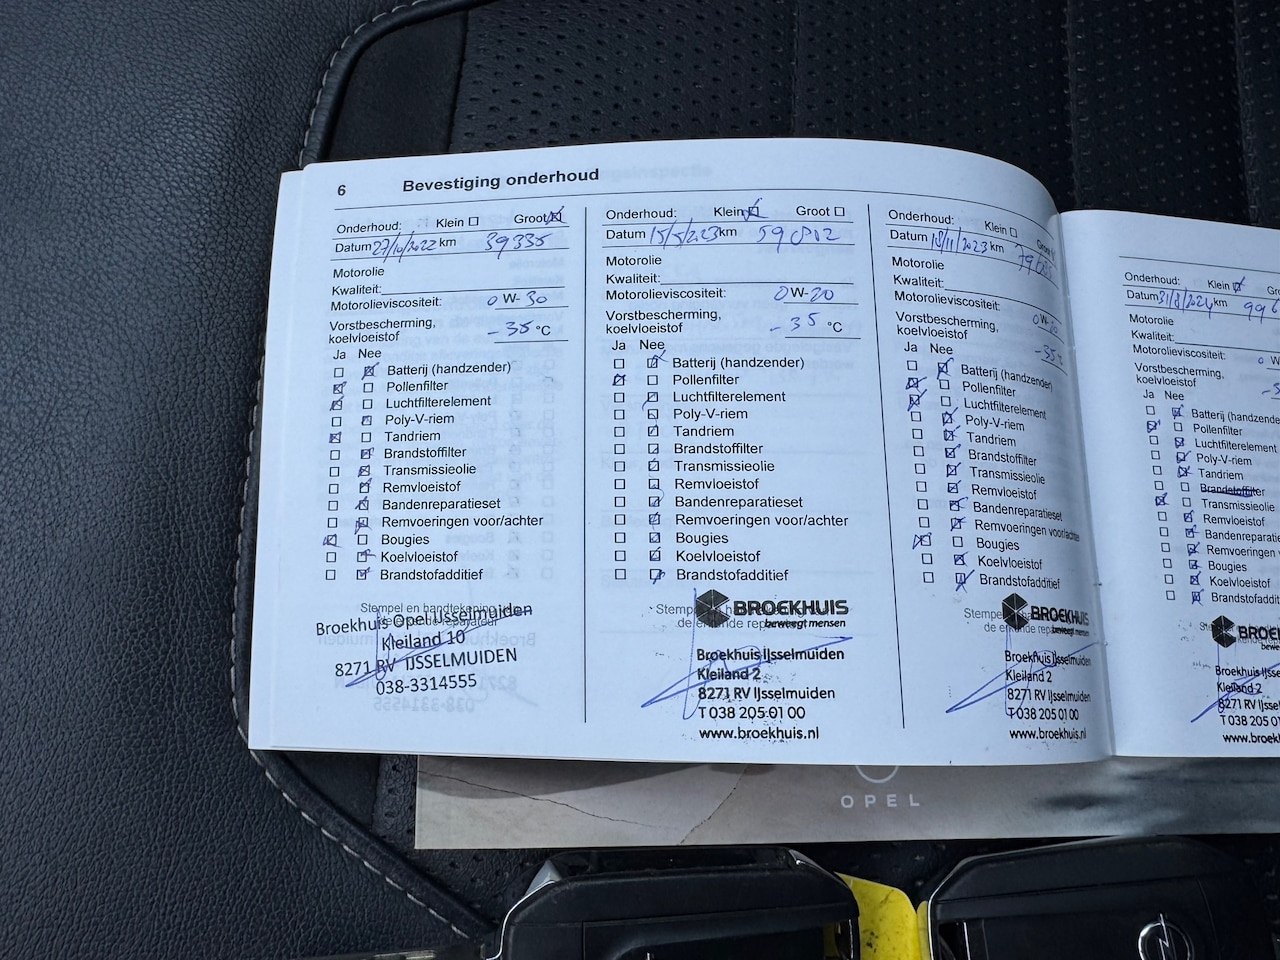 6 Bevestiging onderhoud
Onderhoud: Klein Groot
Datum 27/10/2022 km 39335
Motorolie
Kwaliteit:
Motorolieviscositeit: 0 W- 30
Vorstbescherming,
koelvloeistof -35 °C
Ja Nee
Batterij (handzender)
Pollenfilter
Luchtfilterelement
Poly-V-riem
Tandriem
Brandstoffilter
Transmissieolie
Remvloeistof
Bandenreparatieset
Remvoeringen voor/achter
Bougies
Koelvloeistof
Brandstofadditief
Stempel en handtekening
Broekhuis Opel IJsselmuiden
Kleiland 10
8271 RV IJSSELMUIDEN
038-3314555
Onderhoud: Klein Groot
Datum 15/5/2023 km
Motorolie
Kwaliteit:
Motorolieviscositeit: 0 W- 20
Vorstbescherming,
koelvloeistof -35 °C
Ja Nee
Batterij (handzender)
Pollenfilter
Luchtfilterelement
Poly-V-riem
Tandriem
Brandstoffilter
Transmissieolie
Remvloeistof
Bandenreparatieset
Remvoeringen voor/achter
Bougies
Koelvloeistof
Brandstofadditief
BROEKHUIS
beweegt mensen
Broekhuis IJsselmuiden
Kleiland 2
8271 RV IJsselmuiden
T 038 205 01 00
www.broekhuis.nl
Onderhoud: Klein
Datum 18/11/2023 km
Motorolie
Kwaliteit:
Motorolieviscositeit: 0W-
Vorstbescherming,
koelvloeistof -35
Ja Nee
Batterij (handzender)
Pollenfilter
Luchtfilterelement
Poly-V-riem
Tandriem
Brandstoffilter
Transmissieolie
Remvloeistof
Bandenreparatieset
Remvoeringen voor/achter
Bougies
Koelvloeistof
Brandstofadditief
BROEKHUIS
beweegt mensen
Broekhuis IJsselmuiden
Kleiland 2
8271 RV IJsselmuiden
T 038 205 01 00
www.broekhuis.nl
Onderhoud: Klein
Datum 31/8/2024 km 996
Motorolie
Kwaliteit:
Motorolieviscositeit: 0 W
Vorstbescherming,
koelvloeistof
Ja Nee
Batterij (handzende
Pollenfilter
Luchtfilterelement
Poly-V-riem
Tandriem
Brandstoffilter
Transmissieolie
Remvloeistof
Bandenreparatie
Remvoeringen
Bougies
Koelvloeistof
Brandstofaddit
BROEK
bewe
Broekhuis IJsse
Kleiland 2
8271 RV IJsse
T 038 205 0
www.broekh
OPEL